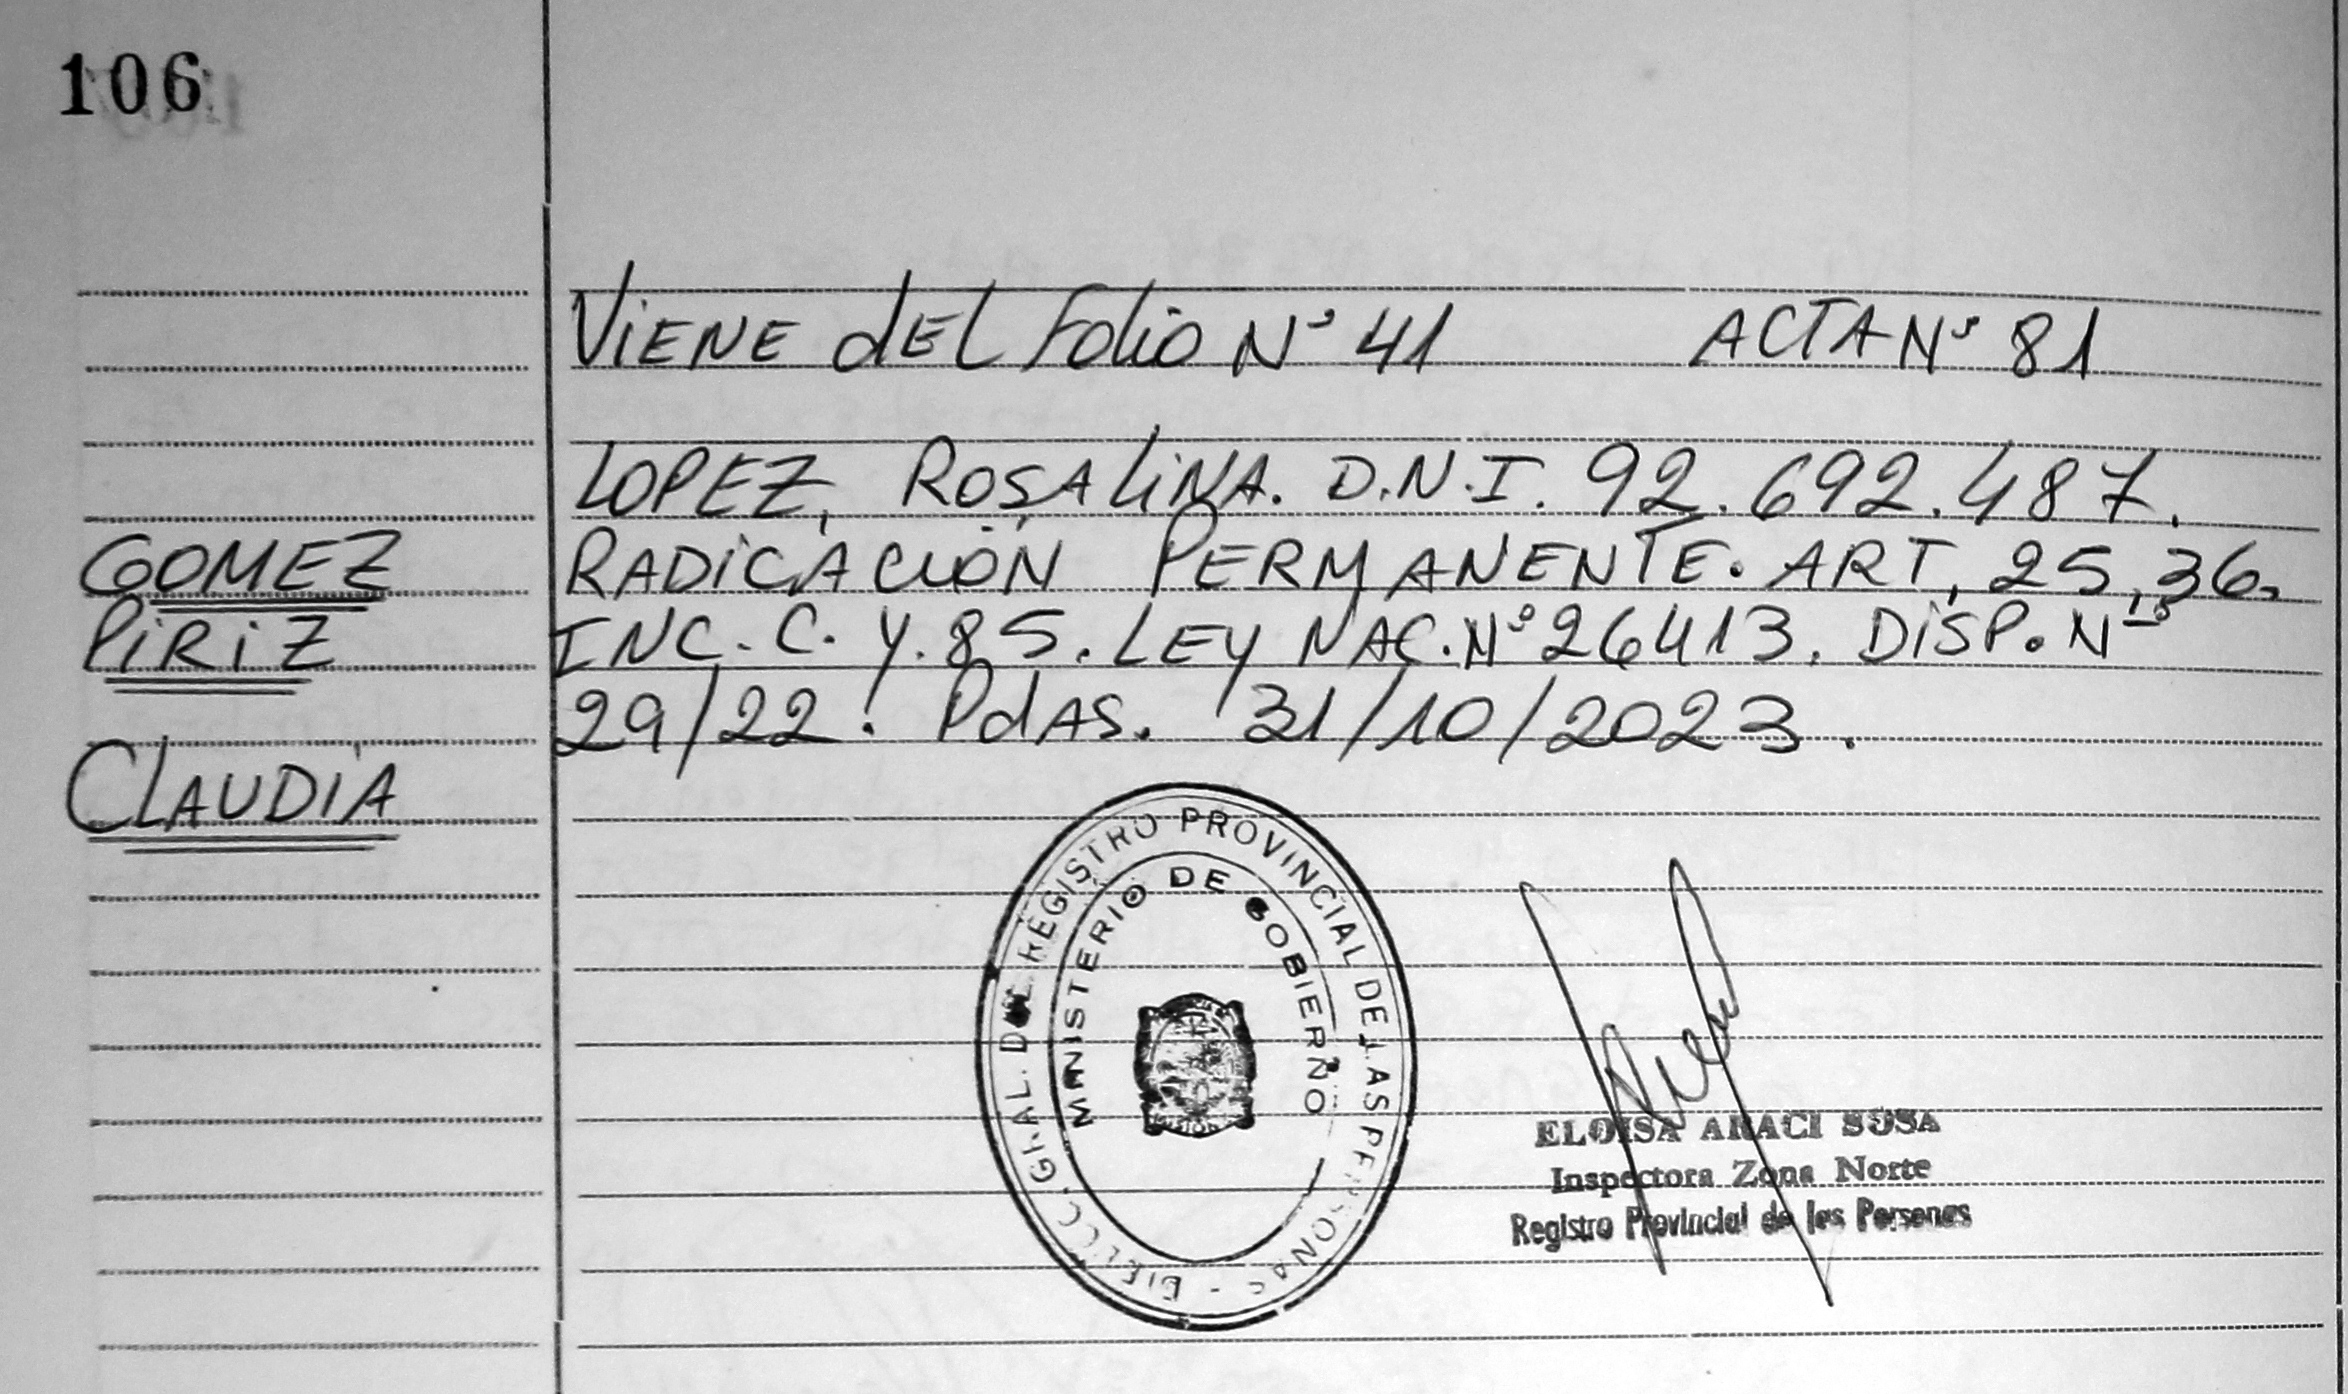 106
VIENE dEL Folio N° 41 ACTA N° 81
LOPEZ, ROSALINA. D.N.I. 92.692.487.
GOMEZ
PIRIZ
CLAUDIA
RADICACIÓN PERMANENTE. ART, 25, 36.
INC. C. Y. 85. LEY NAC. N° 26413. DISP. N°
29/22. PdAS. 31/10/2023.
REGISTRO PROVINCIAL DE LAS PERSONAS - DIRECC. GRAL. DEL
MINISTERIO DE GOBIERNO
ELOISA ARACI SOSA
Inspectora Zona Norte
Registro Provincial de las Personas